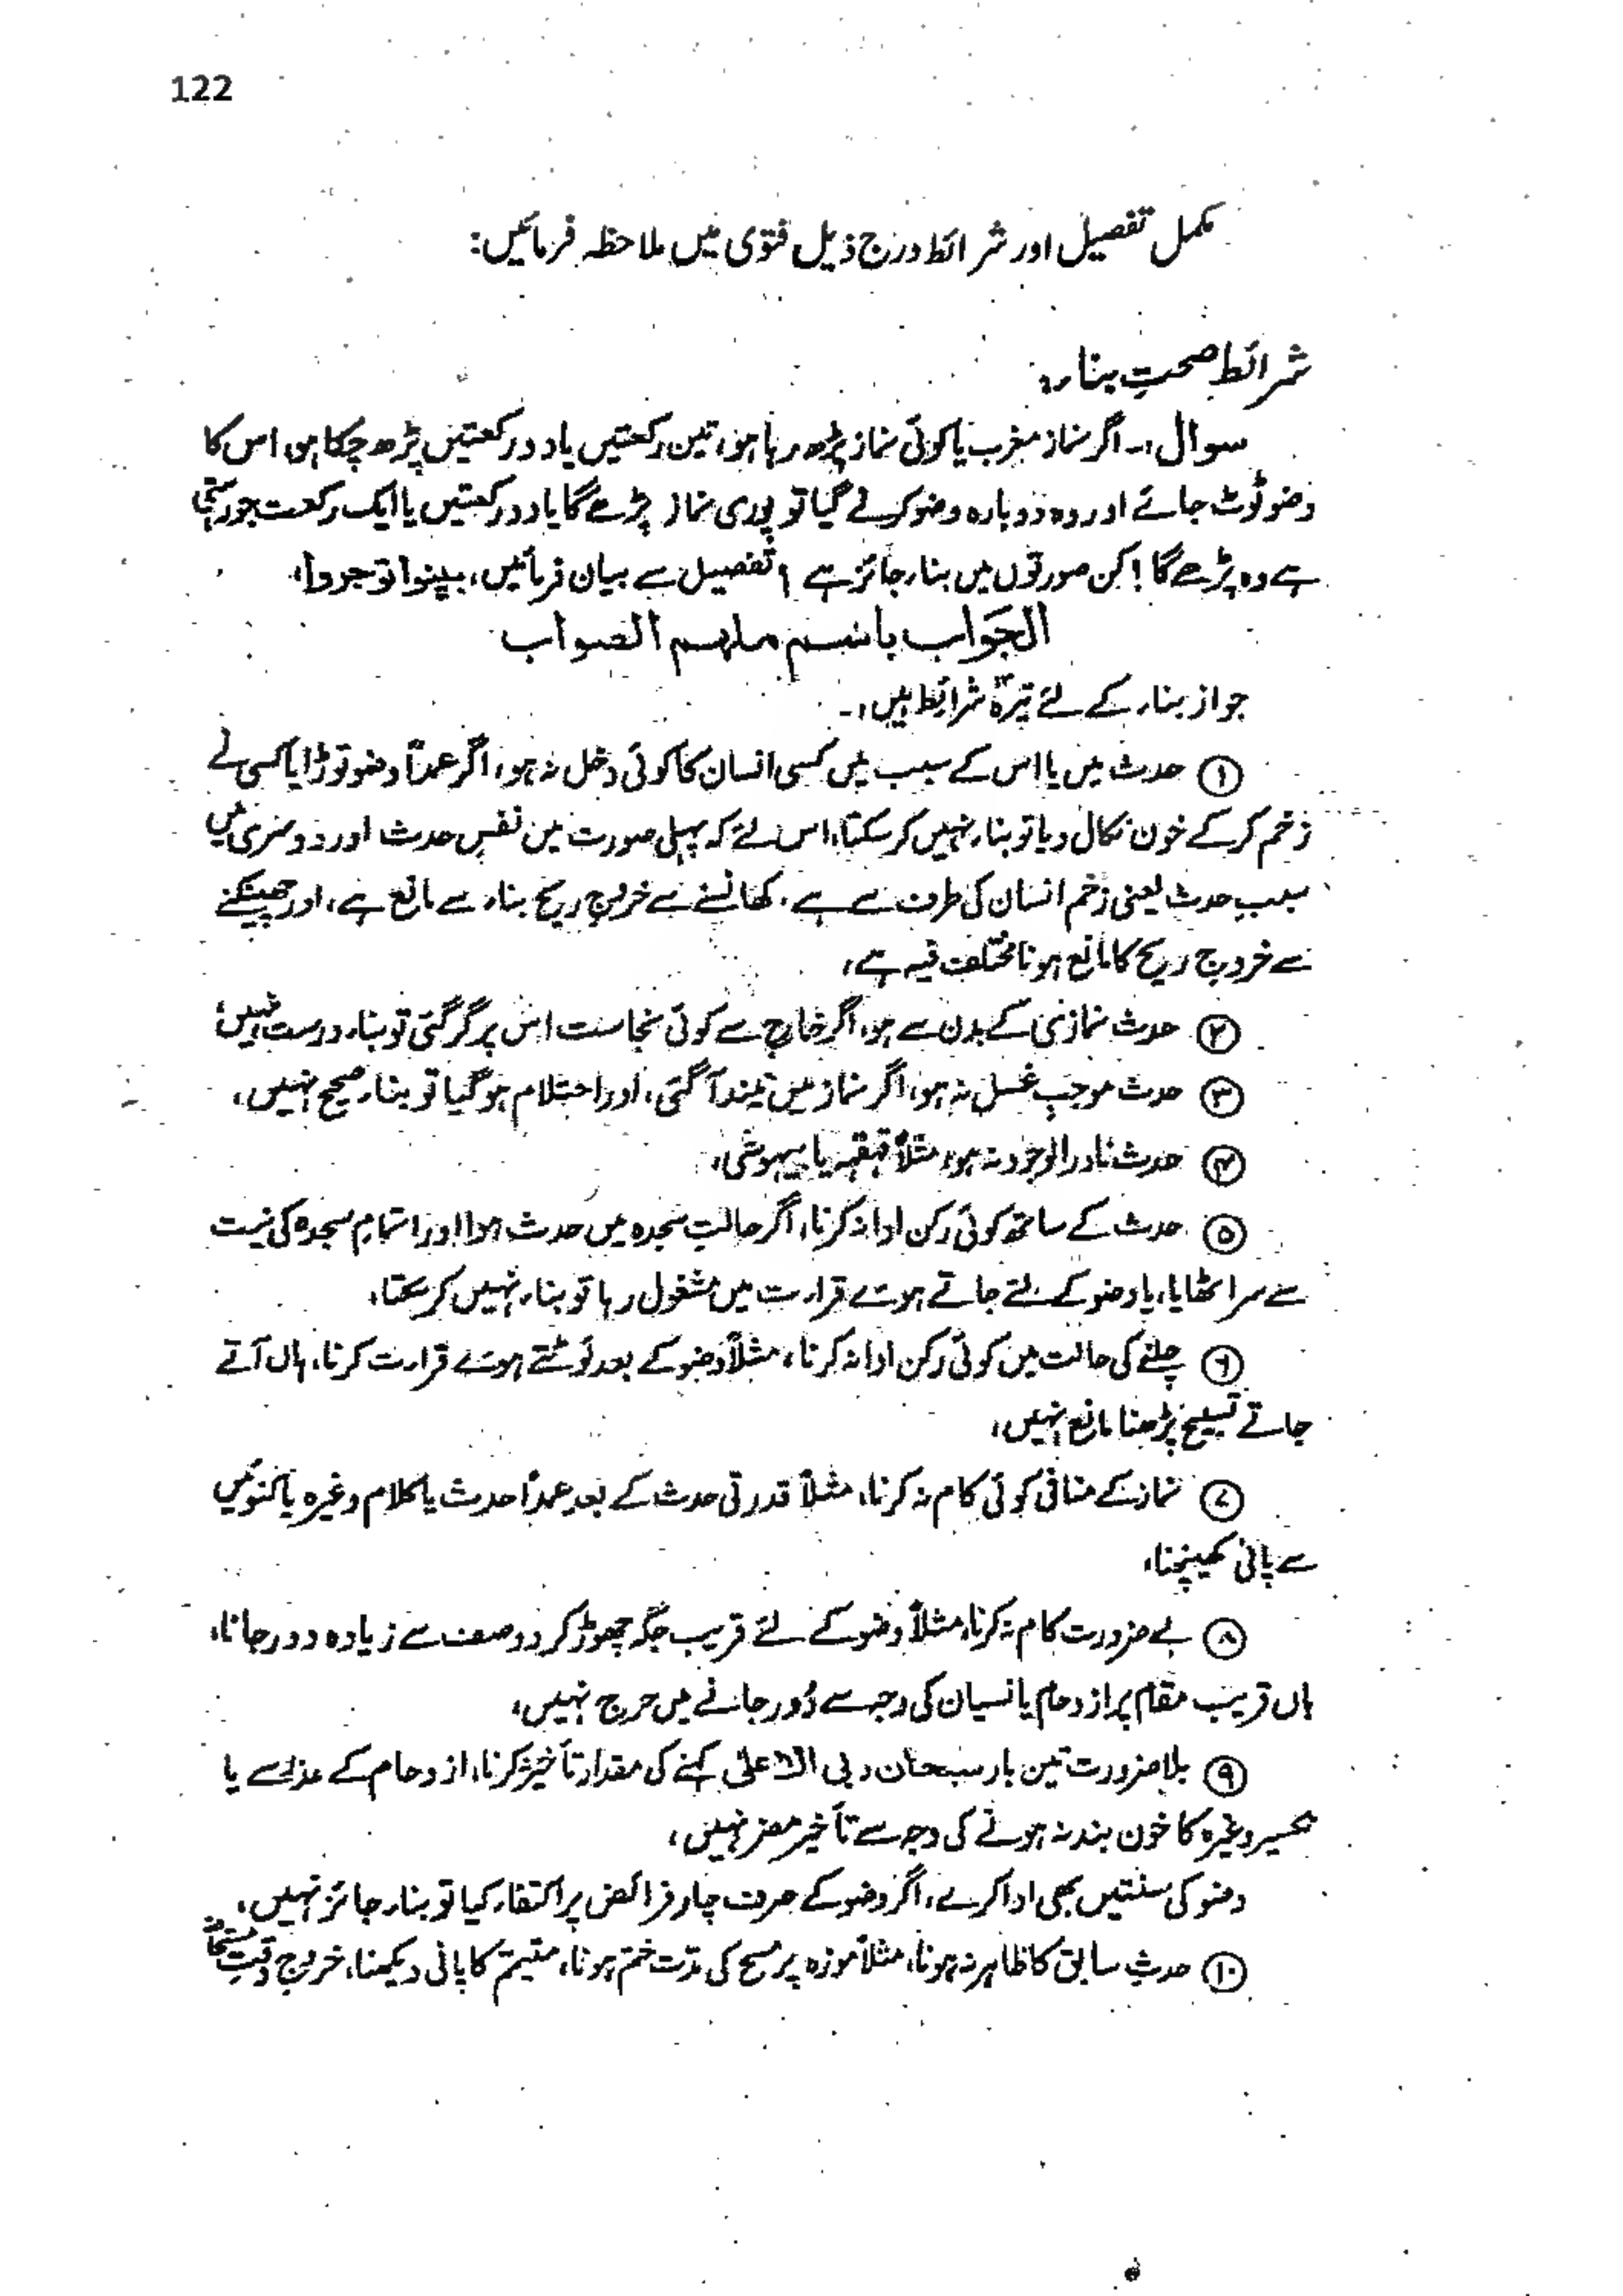 122
مکمل تفصیل اور شرائط درج ذیل فتوی میں ملاحظہ فرمائیں:
شرائط صحتِ بناء:
سوال:۔ اگر نماز مغرب یا کوئی نماز پڑھ رہا ہو، تین رکعتیں یا دو رکعتیں پڑھ چکا ہو، اس کا
وضو ٹوٹ جائے اور وہ دوبارہ وضو کرنے گیا تو پوری نماز پڑھے گا یا دو رکعتیں یا ایک رکعت جو رہتی
ہے وہ پڑھے گا؟ کن صورتوں میں بناء جائز ہے؟ تفصیل سے بیان فرمائیں، بینوا توجروا،
الجَواب باسم ملہم الصواب
جواز بناء کے لئے تیرہ شرائط ہیں:۔
① حدث میں یا اس کے سبب میں کسی انسان کا کوئی دخل نہ ہو، اگر عمداً وضو توڑا یا کسی نے
زخم کرکے خون نکال دیا تو بناء نہیں کرسکتا، اس لئے کہ پہلی صورت میں نفسِ حدث اور دوسری میں
سببِ حدث یعنی زخم انسان کی طرف سے ہے، کھانسنے سے خروجِ ریح بناء سے مانع ہے، اور چھینکنے
سے خروجِ ریح کا مانع ہونا مختلف فیہ ہے،
② حدث نمازی کے بدن سے ہو، اگر خارج سے کوئی نجاست اس پر گر گئی تو بناء درست نہیں،
③ حدث موجبِ غسل نہ ہو، اگر نماز میں نیند آگئی، اور احتلام ہوگیا تو بناء صحیح نہیں،
④ حدث نادر الوجود نہ ہو، مثلاً قہقہہ یا بیہوشی،
⑤ حدث کے ساتھ کوئی رکن ادا نہ کرنا، اگر حالتِ سجدہ میں حدث ہوا اور اتمامِ سجدہ کی نیت
سے سر اٹھایا، یا وضو کے لئے جاتے ہوئے قراءت میں مشغول رہا تو بناء نہیں کرسکتا،
⑥ چلنے کی حالت میں کوئی رکن ادا نہ کرنا، مثلاً وضو کے بعد لوٹتے ہوئے قراءت کرنا، ہاں آتے
جاتے تسبیح پڑھنا مانع نہیں،
⑦ نماز کے منافی کوئی کام نہ کرنا، مثلاً قدرتی حدث کے بعد عمداً حدث یا کلام وغیرہ یا کنوئیں
سے پانی کھینچنا،
⑧ بے ضرورت کام نہ کرنا، مثلاً وضو کے لئے قریب جگہ چھوڑ کر دو صف سے زیادہ دور جانا،
ہاں قریب مقام پر ازدحام یا نسیان کی وجہ سے دُور جانے میں حرج نہیں،
⑨ بلا ضرورت تین بار سبحان ربی الاعلیٰ کہنے کی مقدار تأخیر نہ کرنا، ازدحام کے عذر سے یا
نکسیر وغیرہ کا خون بند نہ ہونے کی وجہ سے تأخیر مضر نہیں،
وضو کی سنتیں بھی ادا کرے، اگر وضو کے صرف چار فرائض پر اکتفاء کیا تو بناء جائز نہیں،
⑩ حدثِ سابق کا ظاہر نہ ہونا، مثلاً موزہ پر مسح کی مدّت ختم ہونا، متیمم کا پانی دیکھنا، خروجِ وقتِ مستحاضہ